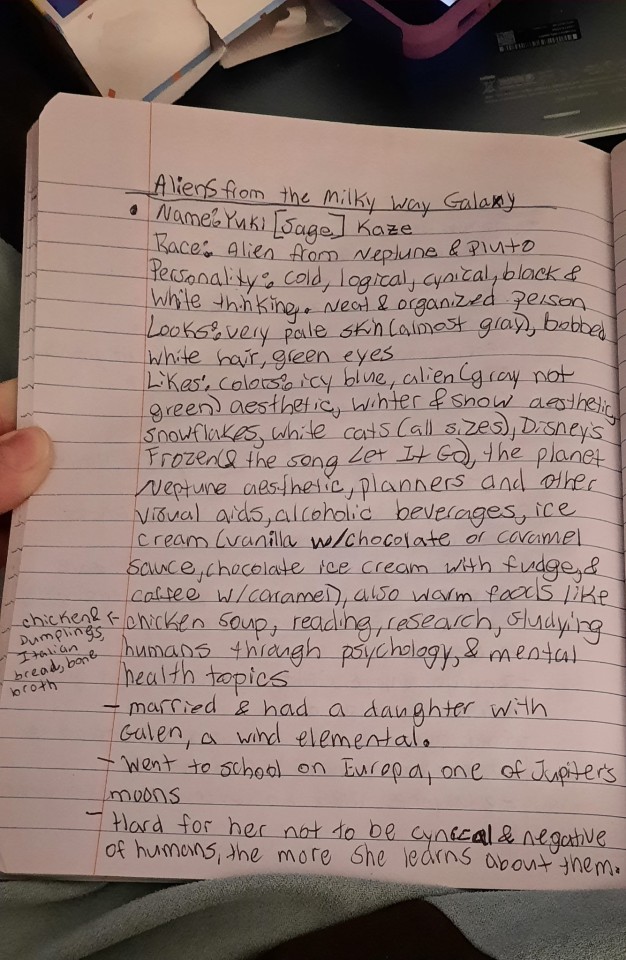 Aliens from the Milky Way Galaxy
• Name: Yuki [Sage] Kaze
Race: Alien from Neptune & Pluto
Personality: cold, logical, cynical, black &
white thinking. Neat & organized person
Looks: very pale skin (almost gray), bobbed
white hair, green eyes
Likes: colors: icy blue, alien (gray not
green) aesthetic, winter & snow aesthetic,
snowflakes, white cats (all sizes), Disney's
Frozen (& the song Let It Go), the planet
Neptune aesthetic, planners and other
visual aids, alcoholic beverages, ice
cream (vanilla w/chocolate or caramel
sauce, chocolate ice cream with fudge, &
coffee w/caramel), also warm foods like
chicken soup, reading, research, studying
humans through psychology, & mental
health topics
chicken &
Dumplings,
Italian
bread, bone
broth
- married & had a daughter with
Galen, a wind elemental.
- Went to school on Europa, one of Jupiter's
moons
- Hard for her not to be cynical & negative
of humans, the more she learns about them.